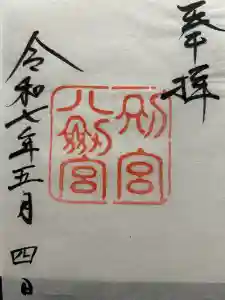 奉拝
別宮
八剱宮
令和七年五月四日